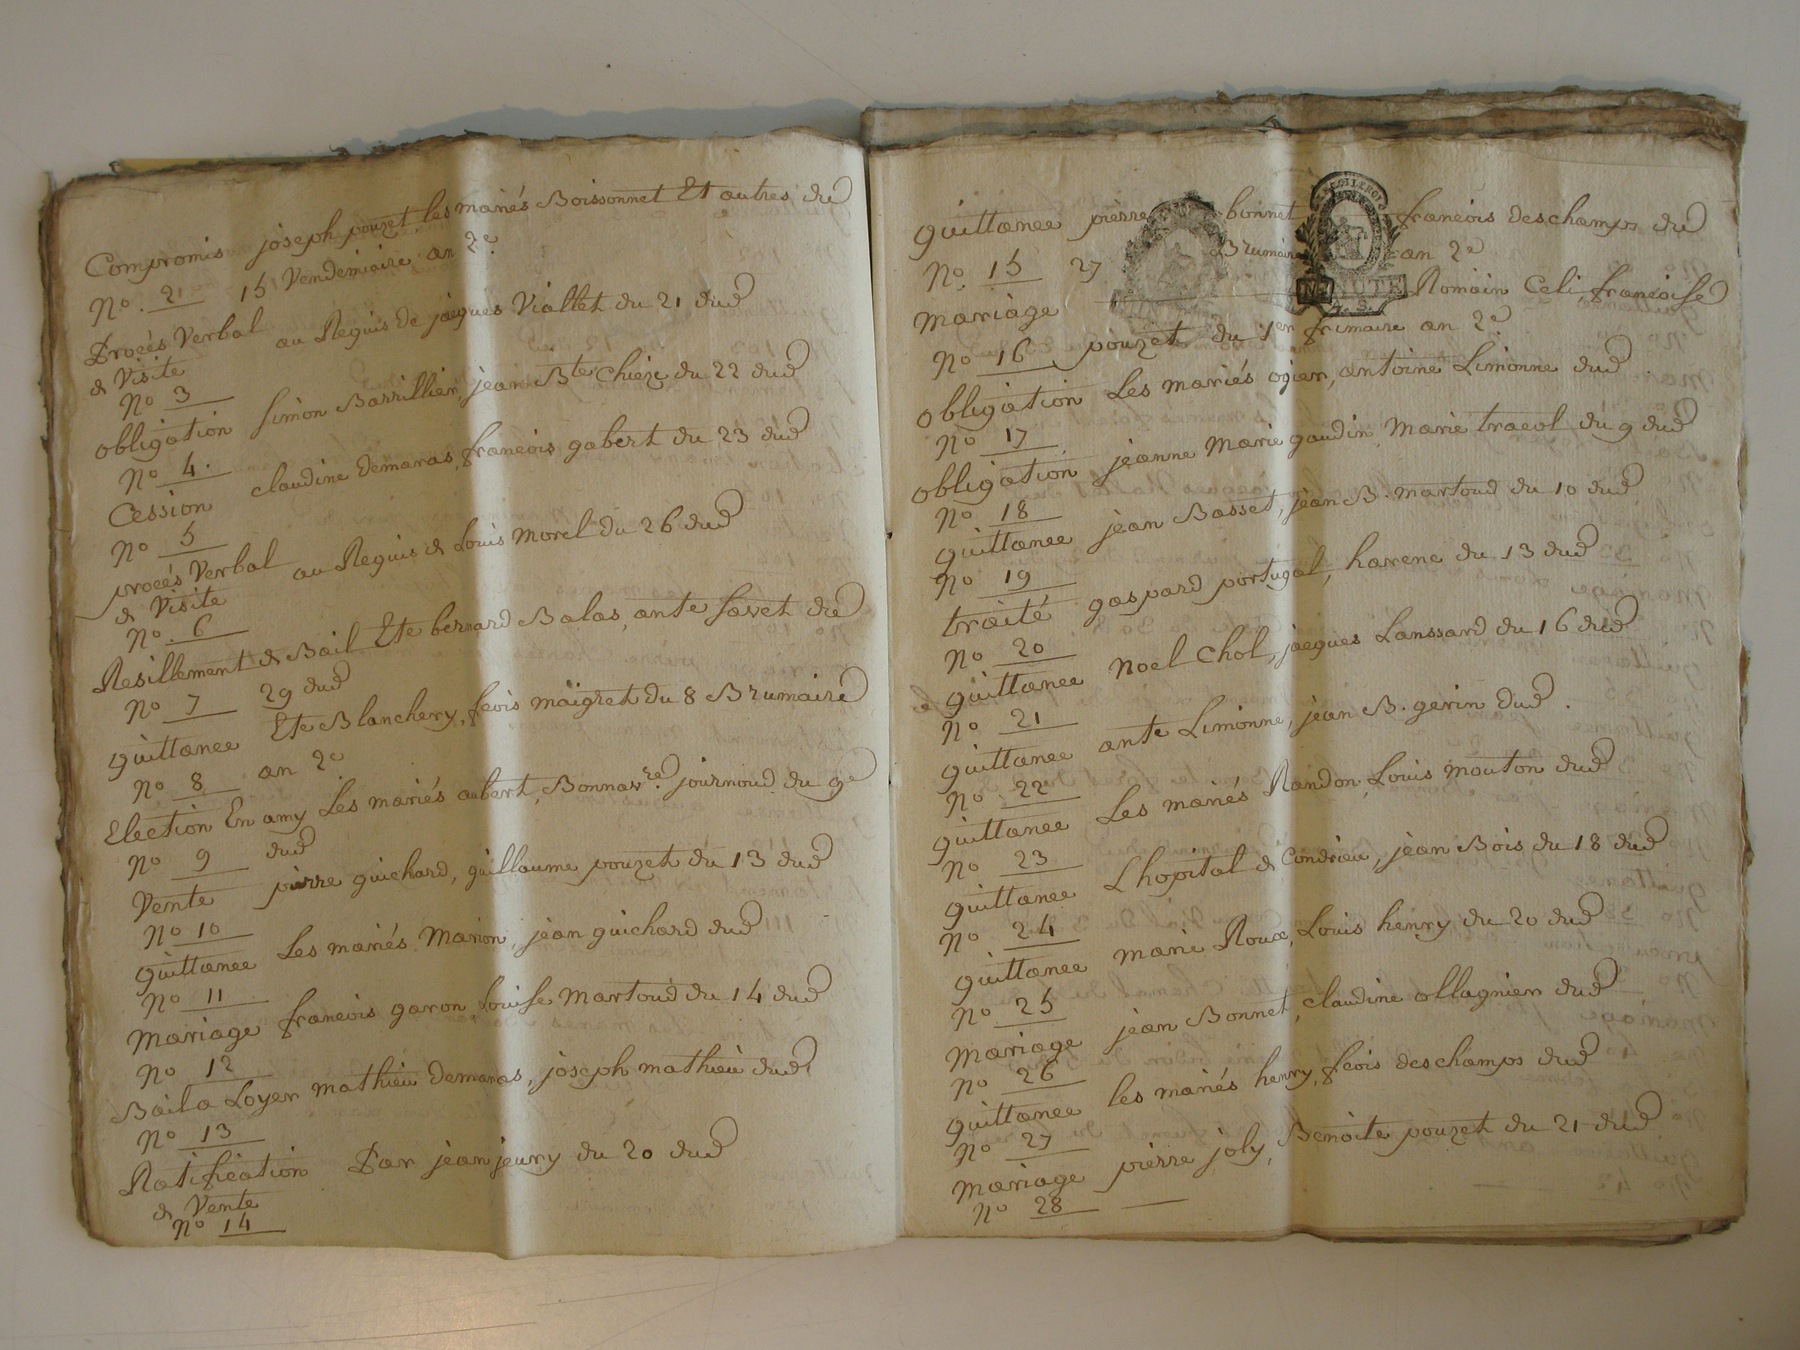 Compromis joseph pouzet, les mariés Boissonnet Et autres du
No. 2 15 Vendemiaire an 2e
Procés Verbal au Requis de jacques Viallet du 21 dud
de Visite
No 3
obligation simon Barrillier, jean Bte Chieze du 22 dud
No 4.
Cession claudine demaras, francois gabert du 23 dud
No 5
procés Verbal au Requis de Louis morel du 26 dud
de Visite
No 6
Resillement de Bail Ete bernard Balas, ante favet du
No 7 29 dud
quittance Ete Blanchery, fcois maigret du 8 Brumaire
No 8 an 2e
Election En amy Les mariés aubert, Bonnavre. journoud du 9e
No 9 dud
Vente pierre guichard, guillaume pouzet du 13 dud
No 10
quittance Les mariés Marion, jean guichard dud
No 11
Mariage francois garon, Louise Martoud du 14 dud
No 12
Bail a Loyer mathieu demaras, joseph mathieu dud
No 13
Ratification Par jean jeury du 20 dud
de Vente
No 14
quittance pierre bonnet francois deschamps du
No. 15 27 Brumaire an 2e
mariage Romain Celi, francoise
No 16 pouzet du 1er frimaire an 2e
obligation Les mariés ogier, antoine Limonne dud
No 17
obligation jeanne Marie gaudin, Marie tracol du 9 dud
No 18
quittance jean Basset, jean B. martoud du 10 dud
No 19
traité gaspard portugal, harenc du 13 dud
No 20
quittance noel Chol, jacques Lanssard du 16 dud
No 21
quittance ante Limonne, jean B. gerin dud.
No 22
quittance Les mariés Randon, Louis mouton dud
No 23
quittance L'hopital de Condrieu, jean Bois du 18 dud
No 24
quittance marie Roux, Louis henry du 20 dud
No 25
Mariage jean Bonnet, claudine ollagnier dud
No 26
quittance les mariés henry, fcois deschamps dud
No 27
Mariage pierre joly, Benoite pouzet du 21 dud
No 28